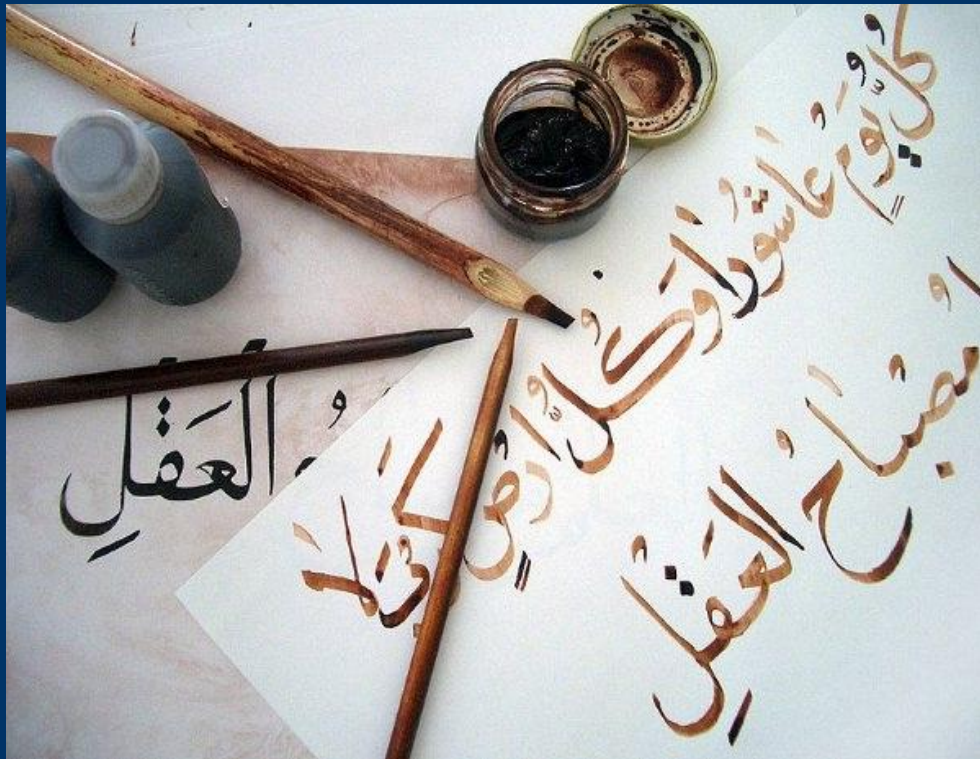 كُلُّ يَوْمٍ عاشُورا وَكُلُّ اَرْضٍ كَرْبَلا
مِصْباحُ العَقْلِ
العَقْلِ